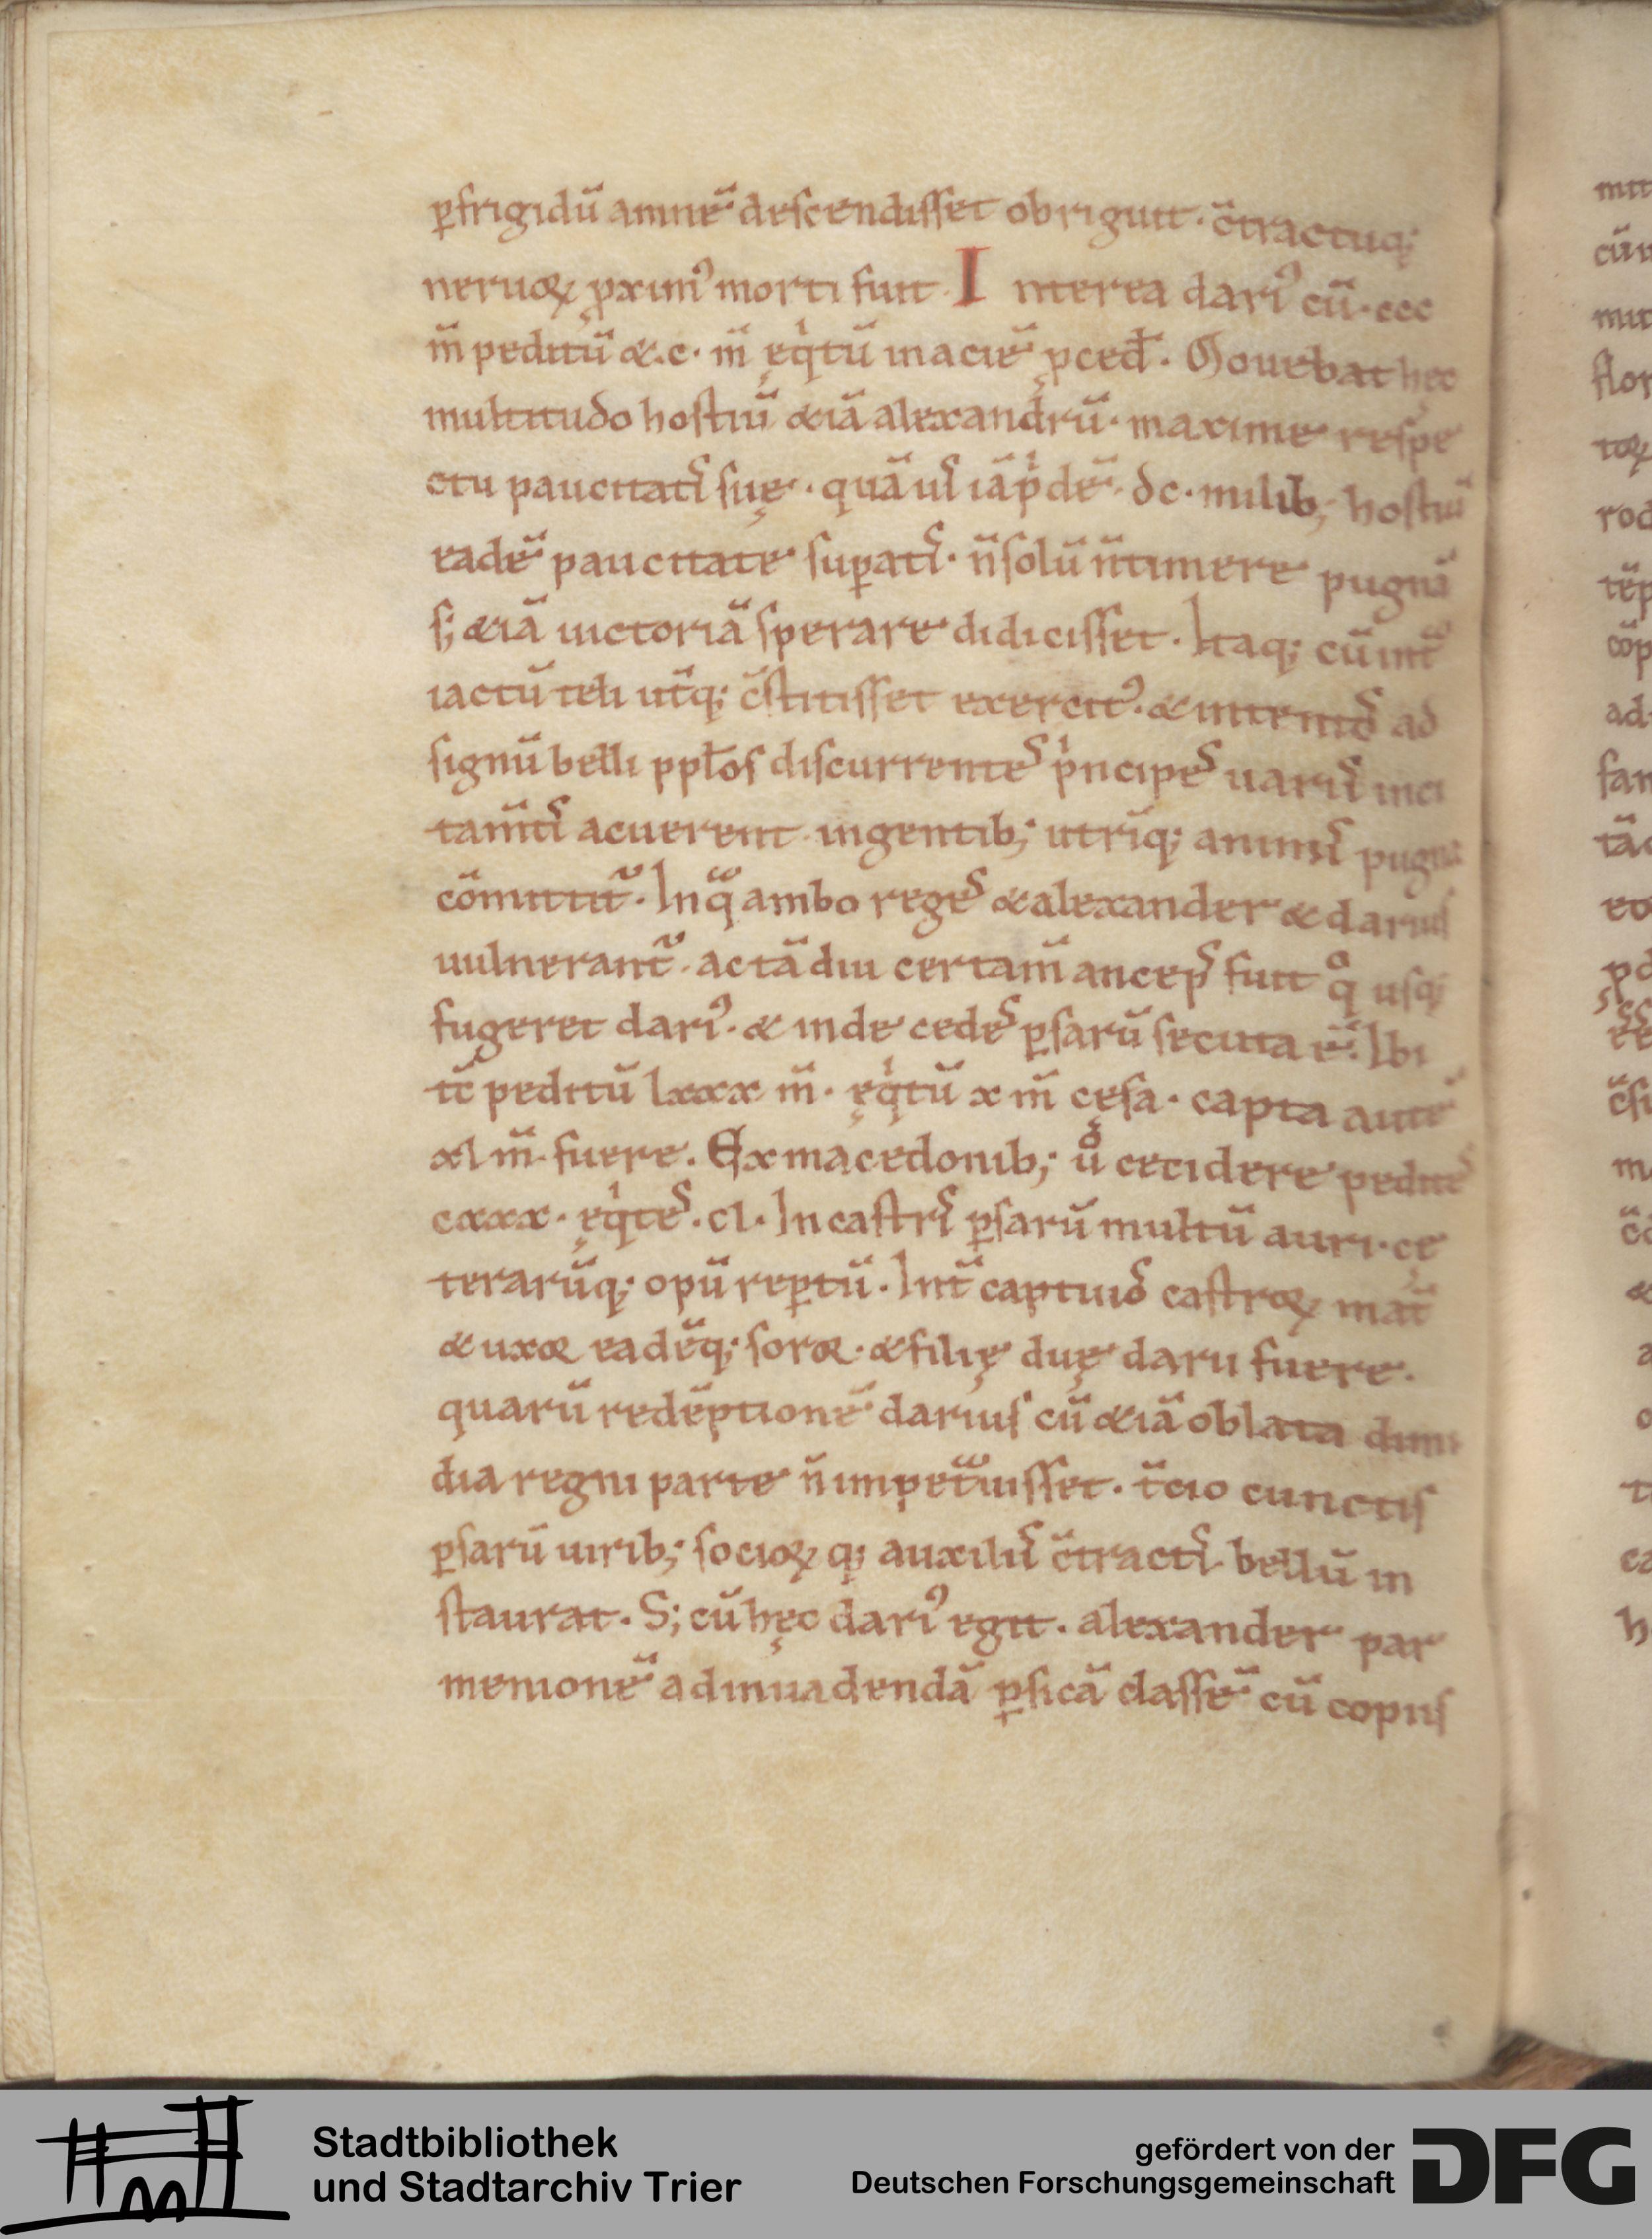 ꝑfrigidū amnē descendisset obriguit. c̄tractuq;
neruoꝝ ꝓximꝰ morti fuit. I nterea dariꝰ cū. ccc
m̄ peditū &. c. m̄ ęqͥtū in aciē ꝓced̄. Mouebat hec
multitudo hostiū &iā alexandrū. maxime respe
ctu paucitatis suę. quā ul iāpͥdē. dc. milib; hostiū
eadē paucitate suꝑatis. n̄ solū n̄ timere pugnā
s; &iā uictoriā sperare didicisset. Itaq; cū int̄
iactū teli ut̄q; c̄stitisset exercitꝰ. & intentos ad
signū belli ppl̄os discurrentes pͥncipes uariis inci
tam̄tis acuerent. ingentib; utriq; animis pugna
cōmittit̄. In qᷓ ambo reges & alexander & darius
uulnerant̄. ac tā diu certam̄ anceps fuit qͦ usq;
fugeret dariꝰ. & inde cedes ꝑsarū secuta ē. Ibi
tc̄ peditū lxxx m̄. ęqͥtū x m̄ cęsa. capta autē
xl m̄ fuere. Ex macedonib; uͦ cecidere pedites
cxxx. ęqͥtes. cl. In castris ꝑsarū multū auri. ce
terarūq; opū reꝑtū. Int̄ captiuos castroꝝ mat̄
& uxor eadēq; soror. & filię duę darii fuere.
quarū redēptionē darius cū &iā oblata dimi
dia regni parte n̄ impet̄uisset. t̄cio cunctis
ꝑsarū uirib; socioꝝ q; auxiliis c̄tractis bellū in
staurat. S; cū hęc dariꝰ egit. alexander par
menionē ad inuadendā ꝑsicā classē cū copiis
Stadtbibliothek
und Stadtarchiv Trier
gefördert von der
Deutschen Forschungsgemeinschaft
DFG